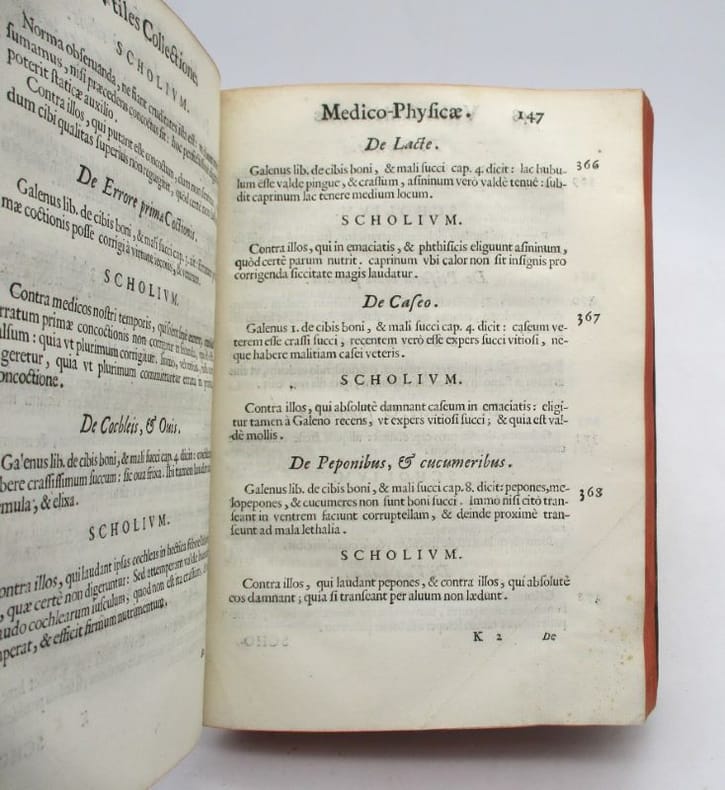 tiles Collectiones
SCHOLIVM.
Norma obseruanda, ne fiant cruditates
sumamus, nisi præcedens concoctus sit: hoc
poterit staticæ auxilio.
Contra illos, qui putant esse concoctum, dum non
dum cibi qualitas superius non rugitet, quòd certè non
De Errore primæ Coctionis.
Galenus lib. de cibis boni, & mali succi cap.
mæ coctionis posse corrigi à virtute
SCHOLIVM.
Contra medicos nostri temporis, qui
rratum primæ concoctionis non corrigitur in secunda,
lsum: quia vt plurimum corrigitur.
geretur, quia vt plurimum
oncoctione.
De Cochleis, & Ouis.
Galenus lib. de cibis boni, & mali succi cap. 4. dicit: cochleas
bere crassissimum succum: sic oua frixa.
mula, & elixa.
SCHOLIVM.
ontra illos, qui laudant ipsas cochleas in hectica
, quæ certè non digeruntur: Sed
udo cochlearum iusculum, quod non est ita crassum,
perat, & efficit firmum nutrimentum.
Medico-Physicæ. 147
De Lacte.
Galenus lib. de cibis boni, & mali succi cap. 4. dicit: lac bubu- 366
lum esse valde pingue, & crassum, asininum verò valdè tenuè: sub-
dit caprinum lac tenere medium locum.
SCHOLIVM.
Contra illos, qui in emaciatis, & phthisicis eliguunt asininum,
quòd certè parum nutrit. caprinum vbi calor non sit insignis pro
corrigenda siccitate magis laudatur.
De Caseo.
Galenus 1. de cibis boni, & mali succi cap. 4. dicit: caseum ve- 367
terem esse crassi succi, recentem verò esse expers succi vitiosi, ne-
que habere malitiam casei veteris.
SCHOLIVM.
Contra illos, qui absolutè damnant caseum in emaciatis: eligi-
tur tamen à Galeno recens, vt expers vitiosi succi; & quia est val-
dè mollis.
De Peponibus, & cucumeribus.
Galenus lib. de cibis boni, & mali succi cap. 8. dicit: pepones, me- 368
lopepones, & cucumeres non sunt boni succi. Immo nisi citò tran-
seant in ventrem faciunt corruptellam, & deinde proximè tran-
seunt ad mala lethalia.
SCHOLIVM.
Contra illos, qui laudant pepones, & contra illos, qui absolutè
eos damnant; quia si transeant per aluum non lædunt.
K 2 De